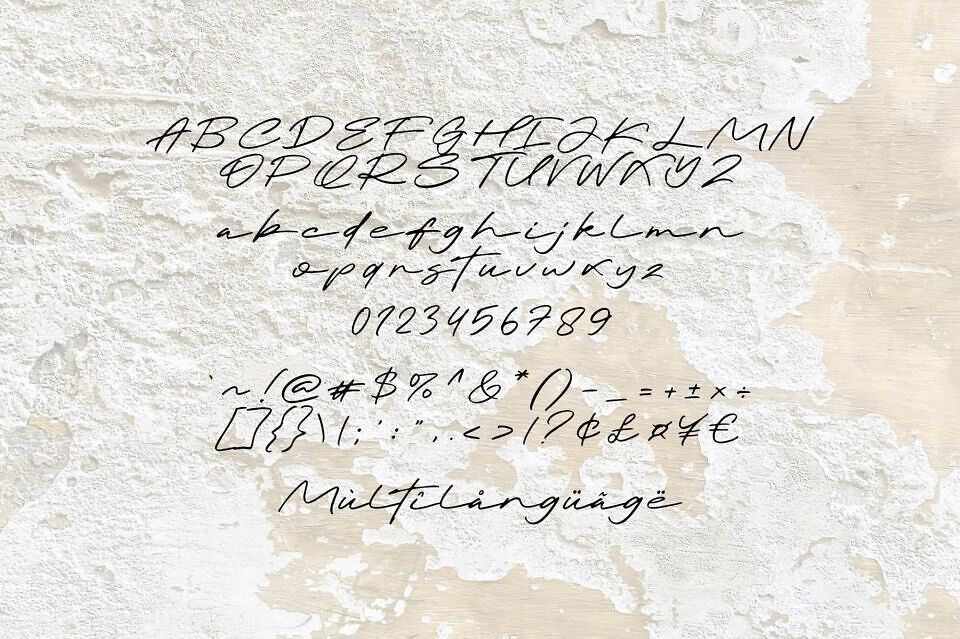 ABCDEFGHIJKLMN
OPQRSTUVWXYZ
abcdefghijklmn
opqrstuvwxyz
0123456789
`~!@#$%^&*()-_=+±×÷
[]{}\|;':",.<>/?¢£¤¥€
Mùltîlångüãgë